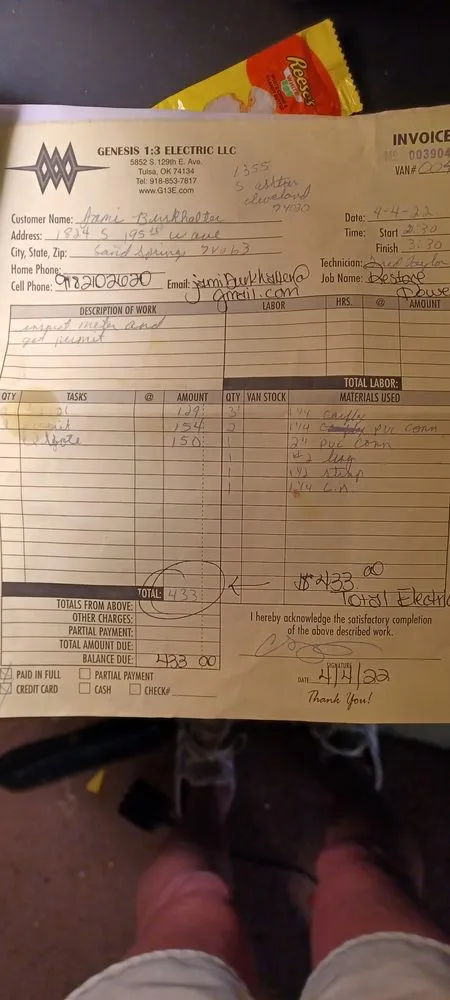 Reese's
GENESIS 1:3 ELECTRIC LLC
5852 S. 129th E. Ave.
Tulsa, OK 74134
Tel: 918-853-7817
www.G13E.com
1355
S
cleveland
74020
INVOICE
No 003904
VAN#
Customer Name: Jami Burkhalter
Address: 1824 S 195th W ave
City, State, Zip: Sand Springs 74063
Home Phone:
Cell Phone: 9182102620
Email: jamiburkhalter@
gmail.com
Date: 4-4-22
Time: Start 2:30
Finish 3:30
Technician:
Job Name: Restore
Power
DESCRIPTION OF WORK
LABOR
HRS.
@
AMOUNT
inspect meter and
get permit
TOTAL LABOR:
QTY TASKS @ AMOUNT
129
154
150
QTY VAN STOCK MATERIALS USED
3 1 1/4
2 1 1/4 PVC conn
1 2" PVC conn
1 #2 lug
1 1 1/2 strap
1 1 1/4 L.N
TOTAL: 433
$433.00
Total Electric
TOTALS FROM ABOVE:
OTHER CHARGES:
PARTIAL PAYMENT:
TOTAL AMOUNT DUE:
BALANCE DUE: 433 00
I hereby acknowledge the satisfactory completion
of the above described work.
SIGNATURE
DATE 4/4/22
Thank You!
PAID IN FULL PARTIAL PAYMENT
CREDIT CARD CASH CHECK#